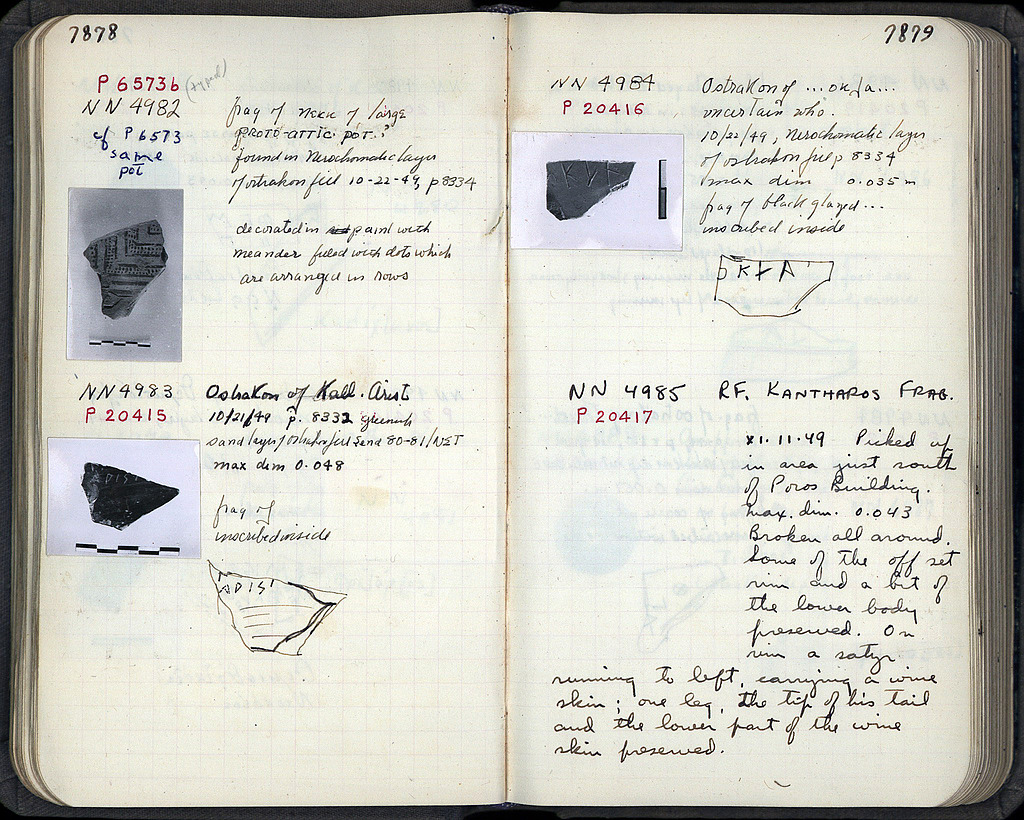 7878
P 6573b (typed)
NN 4982
cf P 6573
same
pot
frag of neck of large
proto-attic pot?
found in Nerochomatic layer
of ostrakon fill 10-22-49, p 8334
decorated in paint with
meander filled with dots which
are arranged in rows
NN 4983
P 20415
Ostrakon of Kall. Arist
10/21/49 p. 8332 greenish
sand layer
max dim 0.048
frag of
inscribed inside
7879
NN 4984
P 20416
Ostrakon of
uncertain who
10/22/49, Nerochomatic layer
of ostrakon fill p 8334
max dim 0.035 m
frag of black glazed ...
inscribed inside
NN 4985 RF. KANTHAROS FRAG.
P 20417
XI.11.49 Picked up
in area just south
of Poros Building.
max. dim. 0.043
Broken all around.
Some of the off set
rim and a bit of
the lower body
preserved. On
rim a satyr
running to left, carrying a wine
skin; one leg, the tip of his tail
and the lower part of the wine
skin preserved.